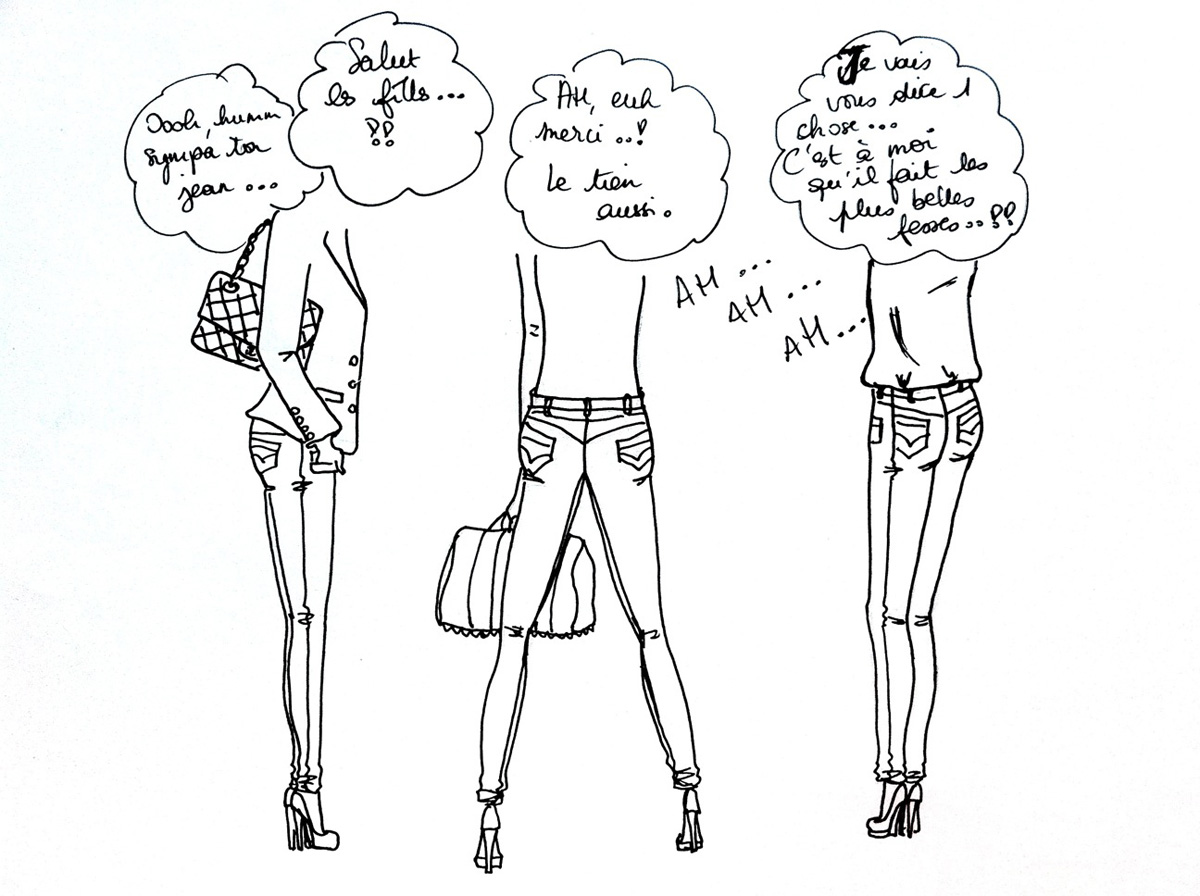 Salut
les filles...
!!
Oooh, humm
sympa ton
jean...
AH, euh
merci..!
Le tien
aussi.
AH...
AH...
AH...
Je vais
vous dire 1
chose...
C'est à moi
qu'il fait les
plus belles
fesses..!!